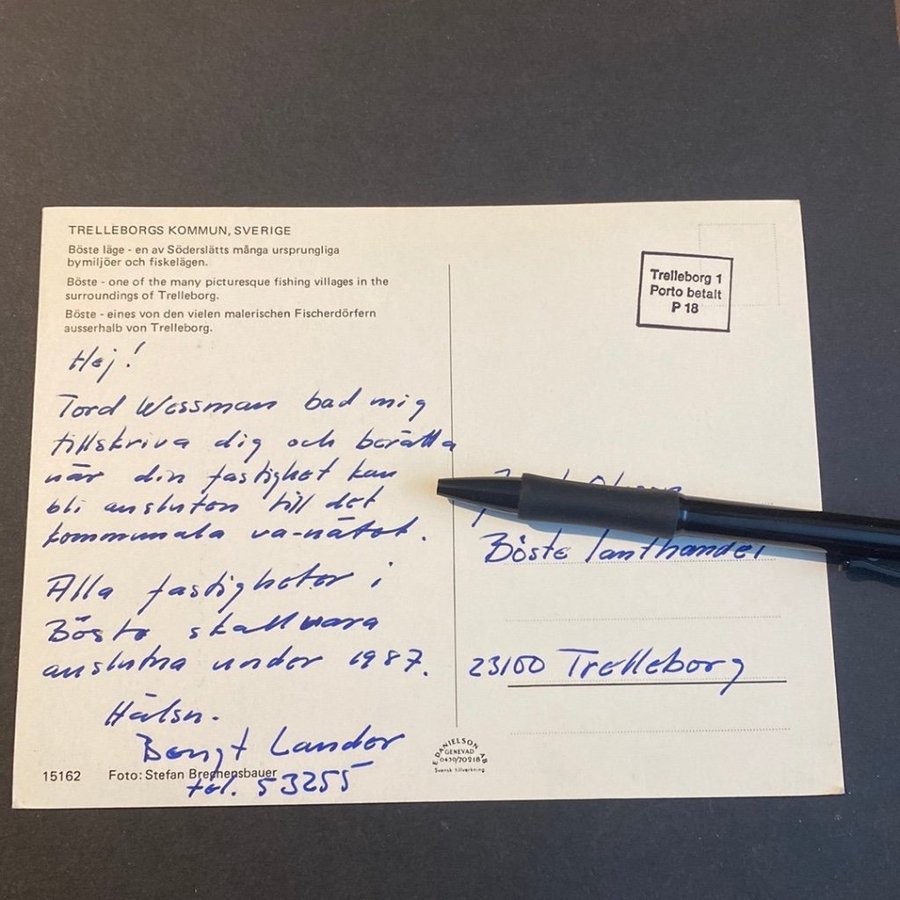 TRELLEBORGS KOMMUN, SVERIGE
Böste läge - en av Söderslätts många ursprungliga
bymiljöer och fiskelägen.
Böste - one of the many picturesque fishing villages in the
surroundings of Trelleborg.
Böste - eines von den vielen malerischen Fischerdörfern
ausserhalb von Trelleborg.
Hej!
Tord Wessman bad mig
tillskriva dig och berätta
när din fastighet kan
bli ansluten till det
kommunala va-nätet.
Alla fastigheter i
Böste skall vara
anslutna under 1987.
Hälsn.
Bengt Lander
tel. 53255
15162 Foto: Stefan Breghensbauer
E. DANIELSON AB
GENEVAD
0430/70218
Svensk tillverkning
Trelleborg 1
Porto betalt
P 18
Böste lanthandel
23100 Trelleborg